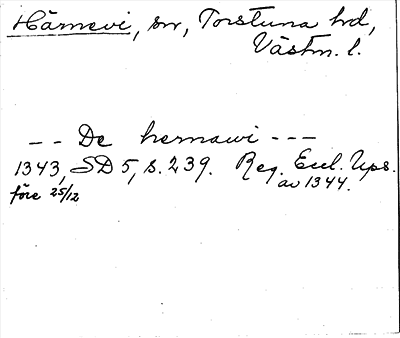 Härnevi, sn, Torstuna hd,
Västm. l.
-- De hernawi ---
1343, SD 5, s. 239. Reg. Eccl. Ups.
före 25/12 av 1344.